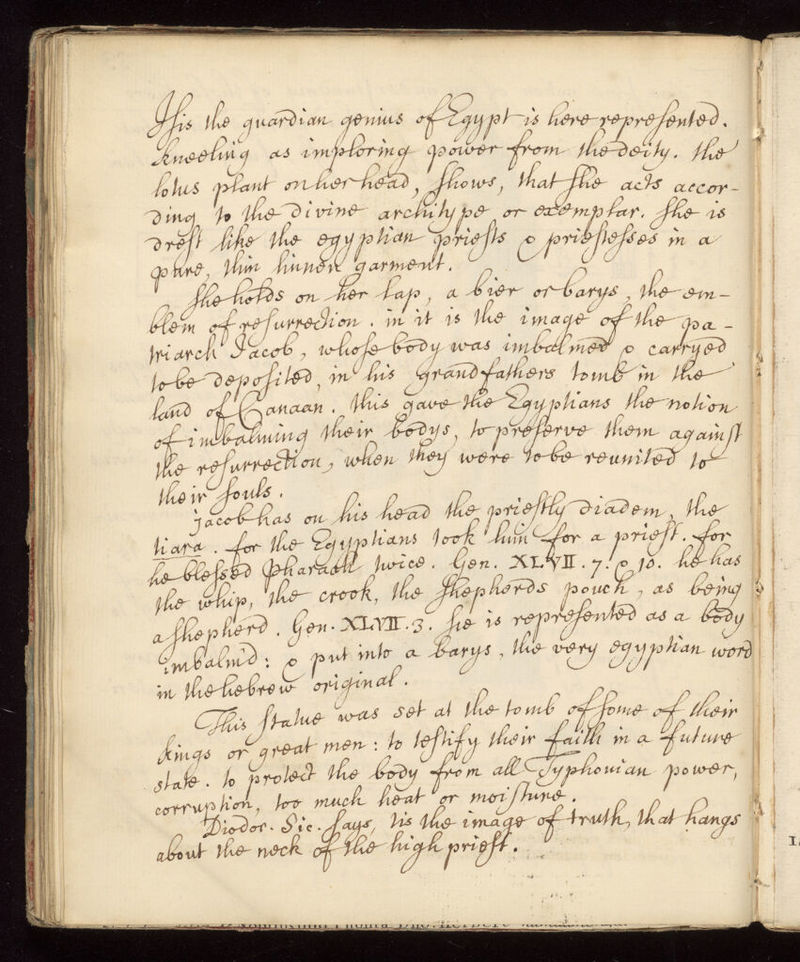 Isis the guardian genius of Egypt is here represented.
kneeling as imploring power from the deity. the
lotus plant on her head, shows, that she acts accor-
ding to the divine architype or exemplar. she is
drest like the egyptian priests & priestesses in a
pure, thin linnen garment.
She holds on her lap, a bier or barys, the em-
blem of resurrection. in it is the image of the pa-
triarch Jacob, whose body was imbalmed & carryed
to be deposited, in his grandfathers tomb in the
land of Canaan. this gave the Egyptians the notion
of imbalming their bodys, to preserve them against
the resurrection, when they were to be reunited to
their souls.
jacob has on his head the priestly diadem, the
tiara. for the Egyptians took him for a priest. for
he blessed Pharaoh twice. Gen. XLVII. 7. & 10. he has
the whip, the crook, the shepherds pouch, as being
a shepherd. Gen. XLVII. 3. he is represented as a body
imbalm'd: & put into a barys, the very egyptian word
in the hebrew original.
This statue was set at the tomb of some of their
kings or great men: to testify their faith in a future
state. to protect the body from all Typhonian power,
corruption, too much heat or moisture.
Diodor. Sic. says, tis the image of truth, that hangs
about the neck of the high priest.